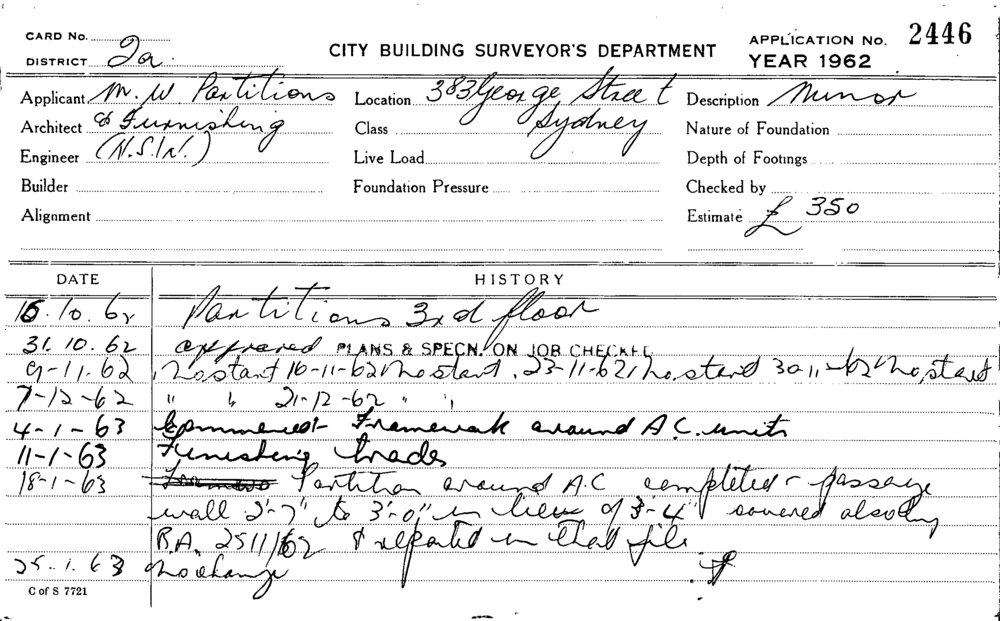 CARD No.
DISTRICT 2a.
CITY BUILDING SURVEYOR'S DEPARTMENT
APPLICATION No. 2446
YEAR 1962
Applicant M. W Partitions
Location 383 George Street
Description Minor
Architect & Furnishing
Class Sydney
Nature of Foundation
Engineer (N.S.W.)
Live Load
Depth of Footings
Builder
Foundation Pressure
Checked by
Alignment
Estimate £ 350
DATE HISTORY
16.10.62 Partitions 3rd floor
31.10.62 approved PLANS & SPECN. ON JOB CHECKED
9-11-62 No start 16-11-62 No start. 23-11-62 No start 30 11-62 No start
7-12-62 " " 21-12-62 " "
4-1-63 Commenced Framework around A.C. units
11-1-63 Finishing trades
18-1-63 Partition around A.C completed - passage
wall 2'-7" to 3'-0" in lieu of 3'-4" covered also by
B.A. 2511/62 & reported in that file
25.1.63 No change
C of S 7721